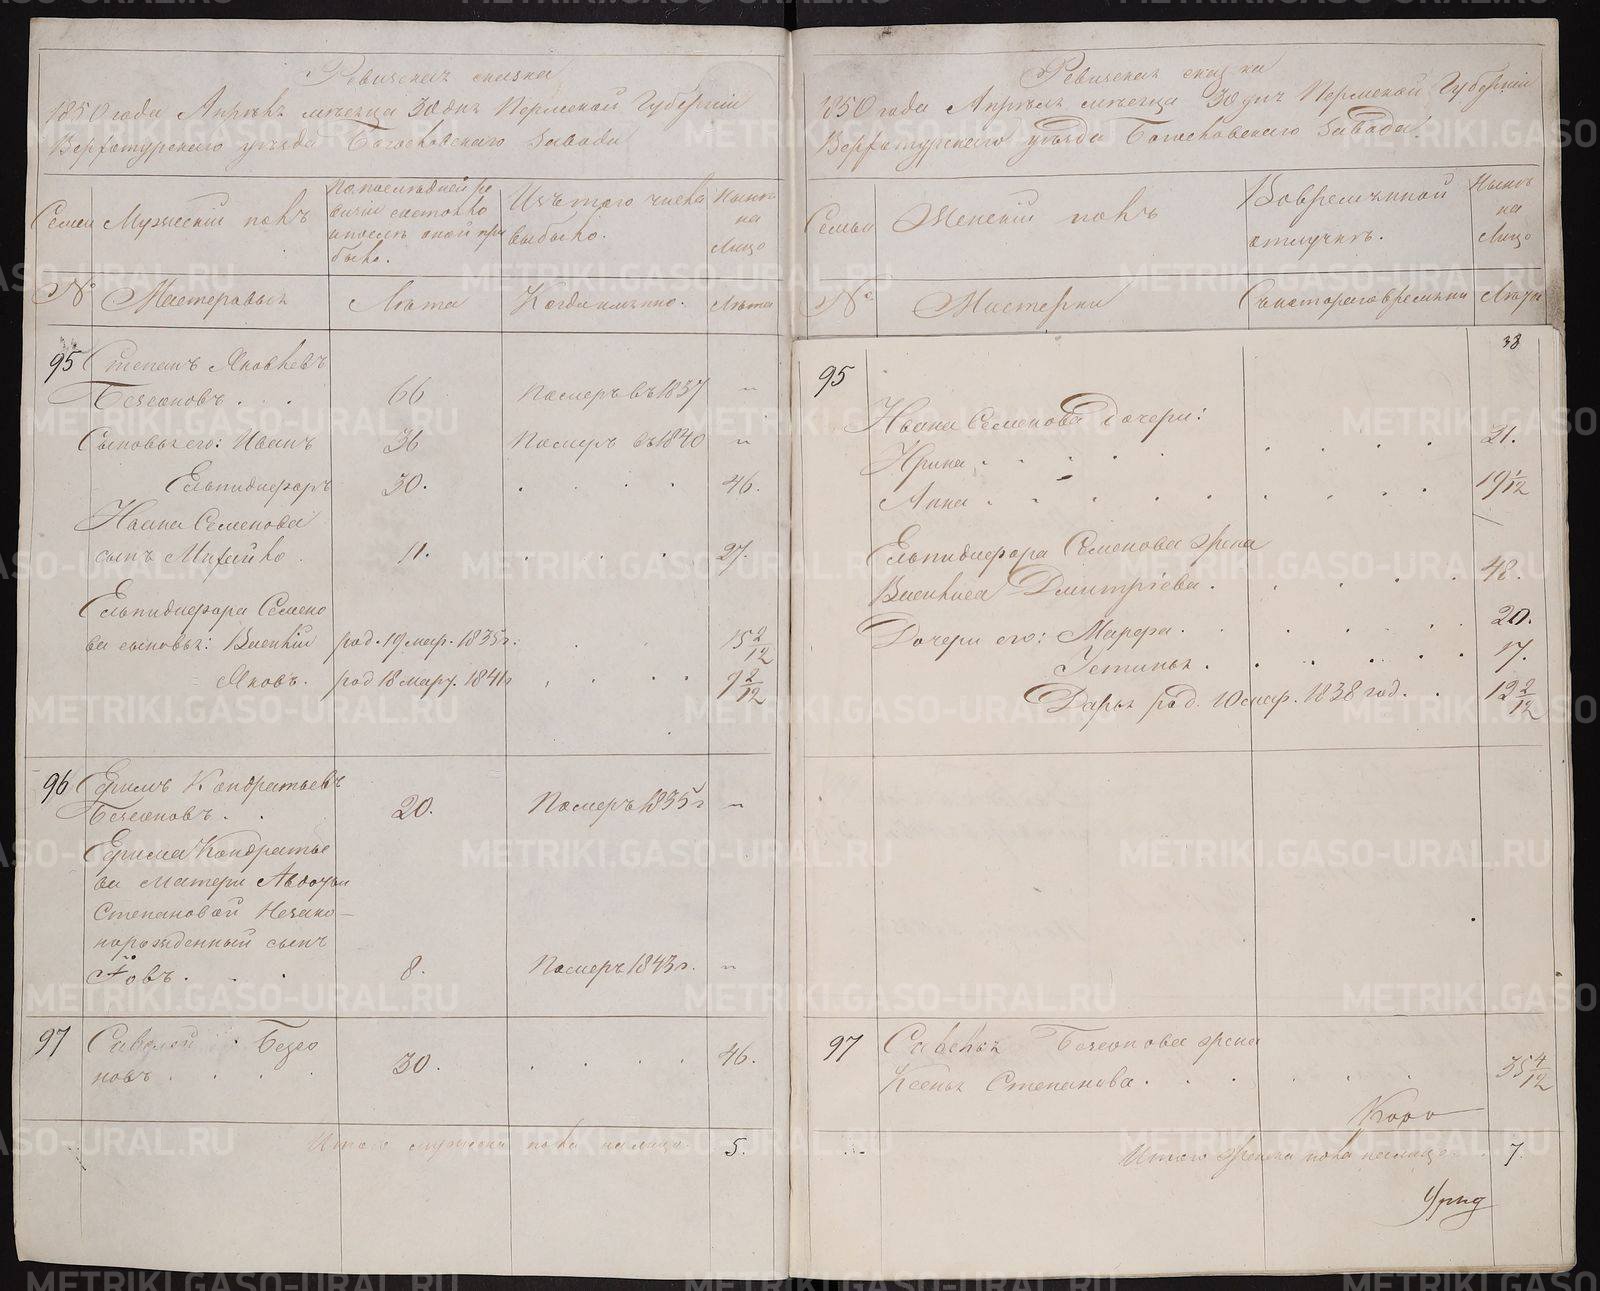 Ревизская сказка
1850 года Апрѣля мѣсяца 30 дня Пермской Губерніи
Верхотурскаго уѣзда Богословскаго завода
Семьи
Мужескій полъ
По последней ре
визіи состояло
и после оной при
было.
Изъ того числа
выбыло.
Нынѣ
на
Лицо
№
Мастеровые
Лѣта
Когда именно.
Лѣта
95
Степанъ Яковлевъ
Безсоновъ . . . 66 Померъ въ 1837 "
Сыновья его: Иванъ 36 Померъ въ 1840 "
Елпидифоръ 30. . . . . 46.
Ивана Семенова
сынъ Михайло . 11. . . . . 27.
Елпидифора Семено
ва сыновья: Василій род. 19 мар. 1835 г. . . 15 2/12
Яковъ. род 18 март. 1841 г . . . 9 2/12
96 Ефимъ Кондратьевъ
Безсоновъ . . 20. Померъ 1835 г "
Ефима Кондратье
ва матери Авдотьи
Степановой Незако-
норожденный сынъ
Іовъ . . . 8. Померъ 1843 г. "
97 Савелій Безсо
новъ . . . . 30. . . . . 46.
Итого мужеска пола налицо 5.
Ревизская сказка
1850 года Апрѣля мѣсяца 30 дня Пермской Губерніи
Верхотурскаго уѣзда Богословскаго Завода.
Семьи
Женскій полъ
Во временной
отлучкѣ.
Нынѣ
на
Лицо
№
Мастерки
Съ котораго времени
Лѣта
38
95
Ивана Семенова Дочери:
Ирина . . . . . . . 21.
Анна . . . . . . . 19 1/12
Елпидифора Семенова жена
Василиса Дмитріева . . . . . 48.
Дочери его: Марфа . . . . . 20.
Устинья . . . . . . 17.
Дарья род. 10 мар. 1838 год. . 12 2/12
97 Савелья Безсонова жена
Ксенья Степанова . . . . . 35 4/12
Итого женска пола налицо 7.
METRIKI.GASO-URAL.RU